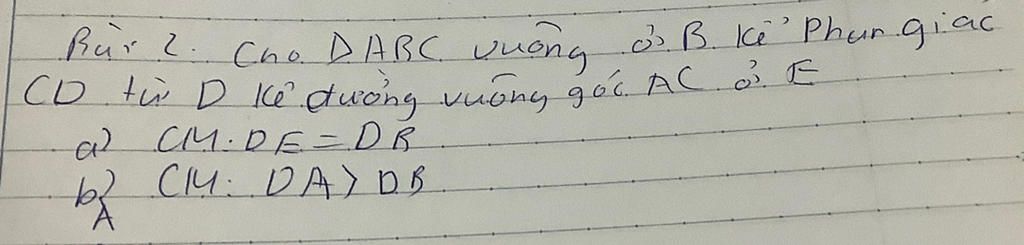 Bài 2. Cho ΔABC vuông ở B kẻ Phân giác
CD từ D kẻ đường vuông góc AC ở E
a) CM: DE = DB
b) CM: DA > DB
A